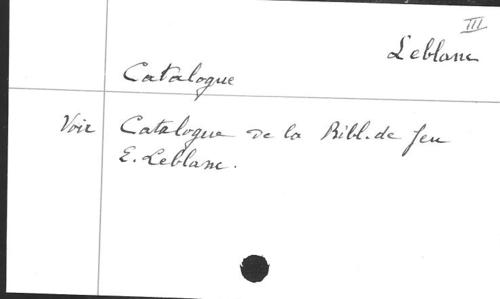 III
Leblanc
Catalogue
Voir Catalogue de la Bibl. de feu
E. Leblanc.